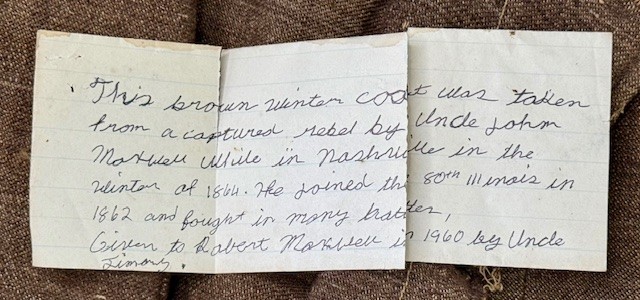 This brown winter coat was taken
from a captured rebel by Uncle John
Maxwell while in Nashville in the
winter of 1864. He joined the 80th Illinois in
1862 and fought in many battles,
Given to Robert Maxwell in 1960 by Uncle
Jimmy.